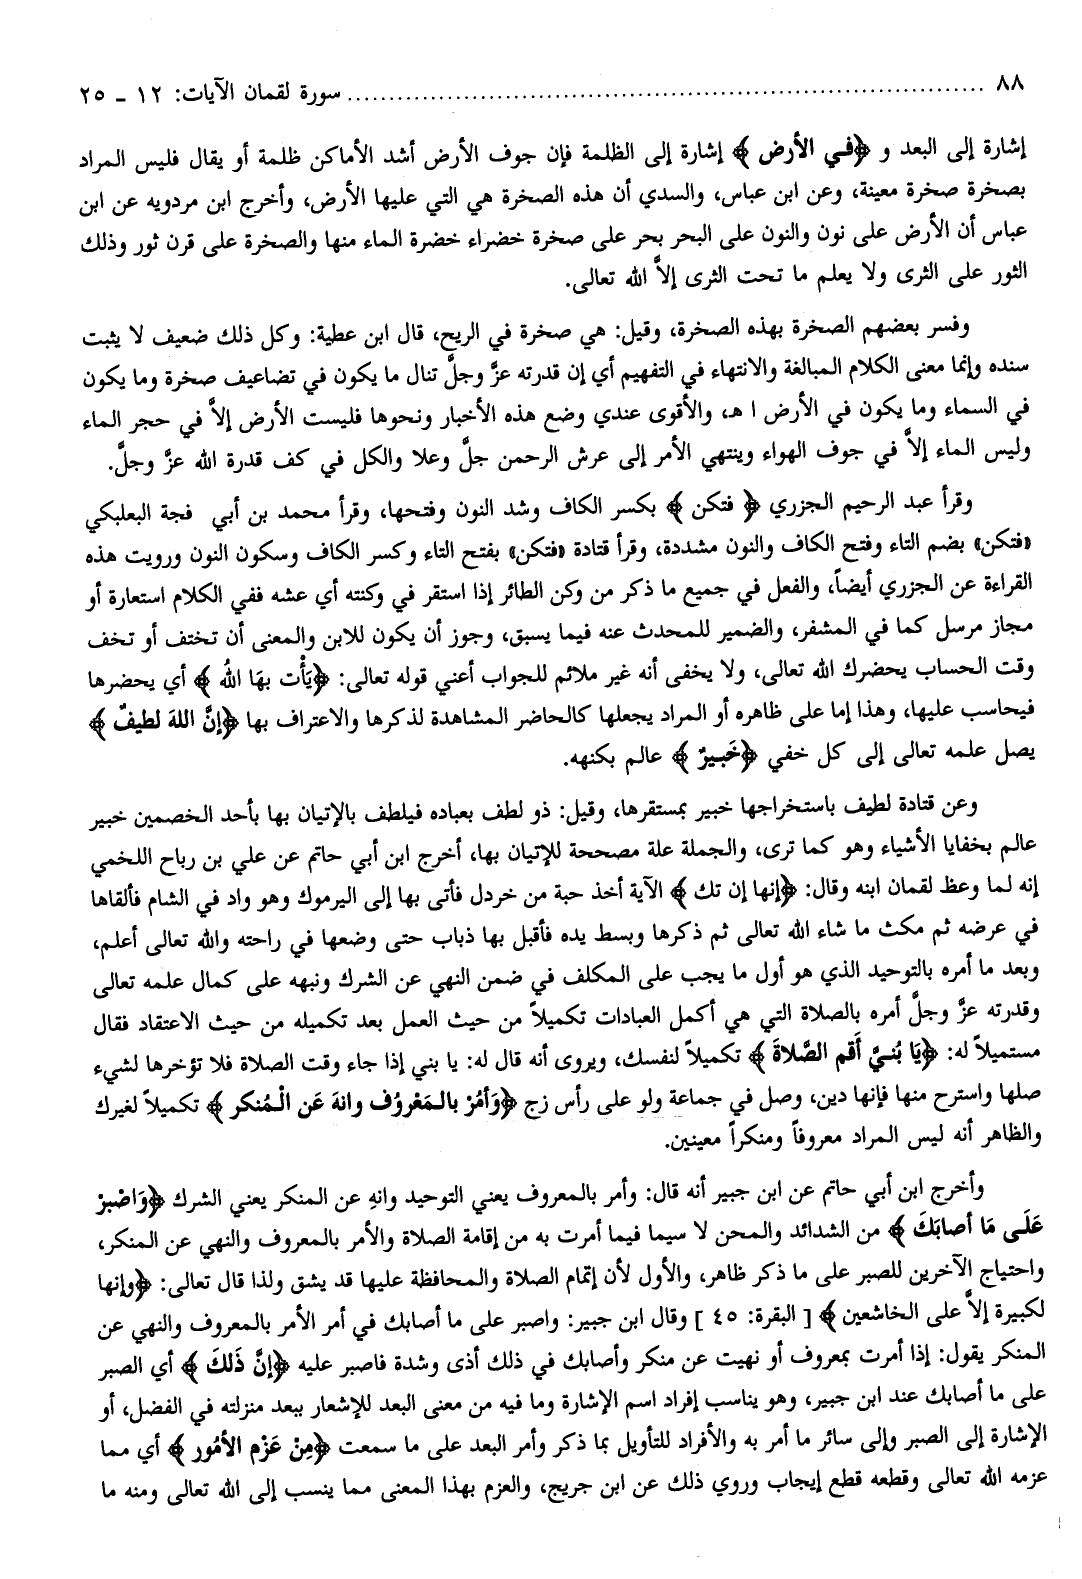 ٨٨ ................................................ سورة لقمان الآيات: ١٢ - ٢٥
إشارة إلى البعد و ﴿في الأرض﴾ إشارة إلى الظلمة فإن جوف الأرض أشد الأماكن ظلمة أو يقال فليس المراد
بصخرة صخرة معينة، وعن ابن عباس، والسدي أن هذه الصخرة هي التي عليها الأرض، وأخرج ابن مردويه عن ابن
عباس أن الأرض على نون والنون على البحر بحر على صخرة خضراء خضرة الماء منها والصخرة على قرن ثور وذلك
الثور على الثرى ولا يعلم ما تحت الثرى إلاَّ الله تعالى.
وفسر بعضهم الصخرة بهذه الصخرة، وقيل: هي صخرة في الريح، قال ابن عطية: وكل ذلك ضعيف لا يثبت
سنده وإنما معنى الكلام المبالغة والانتهاء في التفهيم أي إن قدرته عزَّ وجلَّ تنال ما يكون في تضاعيف صخرة وما يكون
في السماء وما يكون في الأرض ا هـ، والأقوى عندي وضع هذه الأخبار ونحوها فليست الأرض إلاَّ في حجر الماء
وليس الماء إلاَّ في جوف الهواء وينتهي الأمر إلى عرش الرحمن جلَّ وعلا والكل في كف قدرة الله عزَّ وجلَّ.
وقرأ عبد الرحيم الجزري ﴿فتكن﴾ بكسر الكاف وشد النون وفتحها، وقرأ محمد بن أبي فجة البعلبكي
«فتكن» بضم التاء وفتح الكاف والنون مشددة، وقرأ قتادة «فتكن» بفتح التاء وكسر الكاف وسكون النون ورويت هذه
القراءة عن الجزري أيضاً، والفعل في جميع ما ذكر من وكن الطائر إذا استقر في وكنته أي عشه ففي الكلام استعارة أو
مجاز مرسل كما في المشفر، والضمير للمحدث عنه فيما يسبق، وجوز أن يكون للابن والمعنى أن تختف أو تخف
وقت الحساب يحضرك الله تعالى، ولا يخفى أنه غير ملائم للجواب أعني قوله تعالى: ﴿يَأْت بهَا اللهُ﴾ أي يحضرها
فيحاسب عليها، وهذا إما على ظاهره أو المراد يجعلها كالحاضر المشاهدة لذكرها والاعتراف بها ﴿إنَّ اللهَ لطيفٌ﴾
يصل علمه تعالى إلى كل خفي ﴿خَبيرٌ﴾ عالم بكنهه.
وعن قتادة لطيف باستخراجها خبير بمستقرها، وقيل: ذو لطف بعباده فيلطف بالإتيان بها بأحد الخصمين خبير
عالم بخفايا الأشياء وهو كما ترى، والجملة علة مصححة للإتيان بها، أخرج ابن أبي حاتم عن علي بن رباح اللخمي
إنه لما وعظ لقمان ابنه وقال: ﴿إنها إن تك﴾ الآية أخذ حبة من خردل فأتى بها إلى اليرموك وهو واد في الشام فألقاها
في عرضه ثم مكث ما شاء الله تعالى ثم ذكرها وبسط يده فأقبل بها ذباب حتى وضعها في راحته والله تعالى أعلم،
وبعد ما أمره بالتوحيد الذي هو أول ما يجب على المكلف في ضمن النهي عن الشرك ونبهه على كمال علمه تعالى
وقدرته عزَّ وجلَّ أمره بالصلاة التي هي أكمل العبادات تكميلاً من حيث العمل بعد تكميله من حيث الاعتقاد فقال
مستميلاً له: ﴿يَا بُنيَّ أَقم الصَّلاةَ﴾ تكميلاً لنفسك، ويروى أنه قال له: يا بني إذا جاء وقت الصلاة فلا تؤخرها لشيء
صلها واسترح منها فإنها دين، وصل في جماعة ولو على رأس زج ﴿وَأمُرْ بالـمَعْروُف وانهَ عَن الْـمُنكر﴾ تكميلاً لغيرك
والظاهر أنه ليس المراد معروفاً ومنكراً معينين.
وأخرج ابن أبي حاتم عن ابن جبير أنه قال: وأمر بالمعروف يعني التوحيد وانهِ عن المنكر يعني الشرك ﴿وَاصْبرْ
عَلَى مَا أصابَكَ﴾ من الشدائد والمحن لا سيما فيما أمرت به من إقامة الصلاة والأمر بالمعروف والنهي عن المنكر،
واحتياج الآخرين للصبر على ما ذكر ظاهر، والأول لأن إتمام الصلاة والمحافظة عليها قد يشق ولذا قال تعالى: ﴿وإنها
لكبيرة إلاَّ على الخاشعين﴾ [ البقرة: ٤٥ ] وقال ابن جبير: واصبر على ما أصابك في أمر الأمر بالمعروف والنهي عن
المنكر يقول: إذا أمرت بمعروف أو نهيت عن منكر وأصابك في ذلك أذى وشدة فاصبر عليه ﴿إنَّ ذَلكَ﴾ أي الصبر
على ما أصابك عند ابن جبير، وهو يناسب إفراد اسم الإشارة وما فيه من معنى البعد للإشعار ببعد منزلته في الفضل، أو
الإشارة إلى الصبر وإلى سائر ما أمر به والأفراد للتأويل بما ذكر وأمر البعد على ما سمعت ﴿منْ عَزْم الأمُور﴾ أي مما
عزمه الله تعالى وقطعه قطع إيجاب وروي ذلك عن ابن جريج، والعزم بهذا المعنى مما ينسب إلى الله تعالى ومنه ما